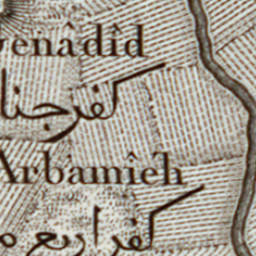 genâdîd
كفر جنا
Arbamîeh
كفر اربع م